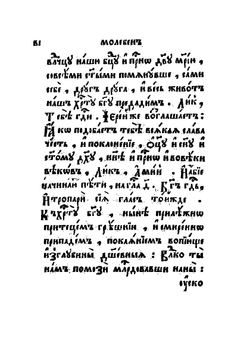 в҃і молебенъ
влⷣчцу нашу бцⷣу и прⷭ҇нѡ дв҃у мр҃їю,
со всѣми ст҃ыми помянувше, сами
себѐ, и другъ друга, и весь животъ
нашъ хрⷭ҇ту бг҃у предадимъ. Ликъ,
Тебѣ гдⷭ҇и. Іерей же возглашаетъ:
Ꙗкѡ подобаетъ тебѣ всякая слава
честь, и поклоненїе, ѻц҃у и сн҃у и
ст҃ому дх҃у, нн҃ѣ и прⷭ҇нѡ и во вѣки
вѣкѡвъ. Ликъ. Аминь. И абїе
начинай пѣти, на гла д҃. Бг҃ъ гдⷭ҇ь,
И тропари сїя гласъ тойже.
Къ хрⷭ҇ту бг҃у, нынѣ прилѣжнѡ
притецемъ грѣшнїи, и смиреннѡ
припадемъ, покаянїемъ вопїюще
из глубины душевныя: Влⷣко ты
намъ помози млⷭ҇рдовавши на ны:
ускo